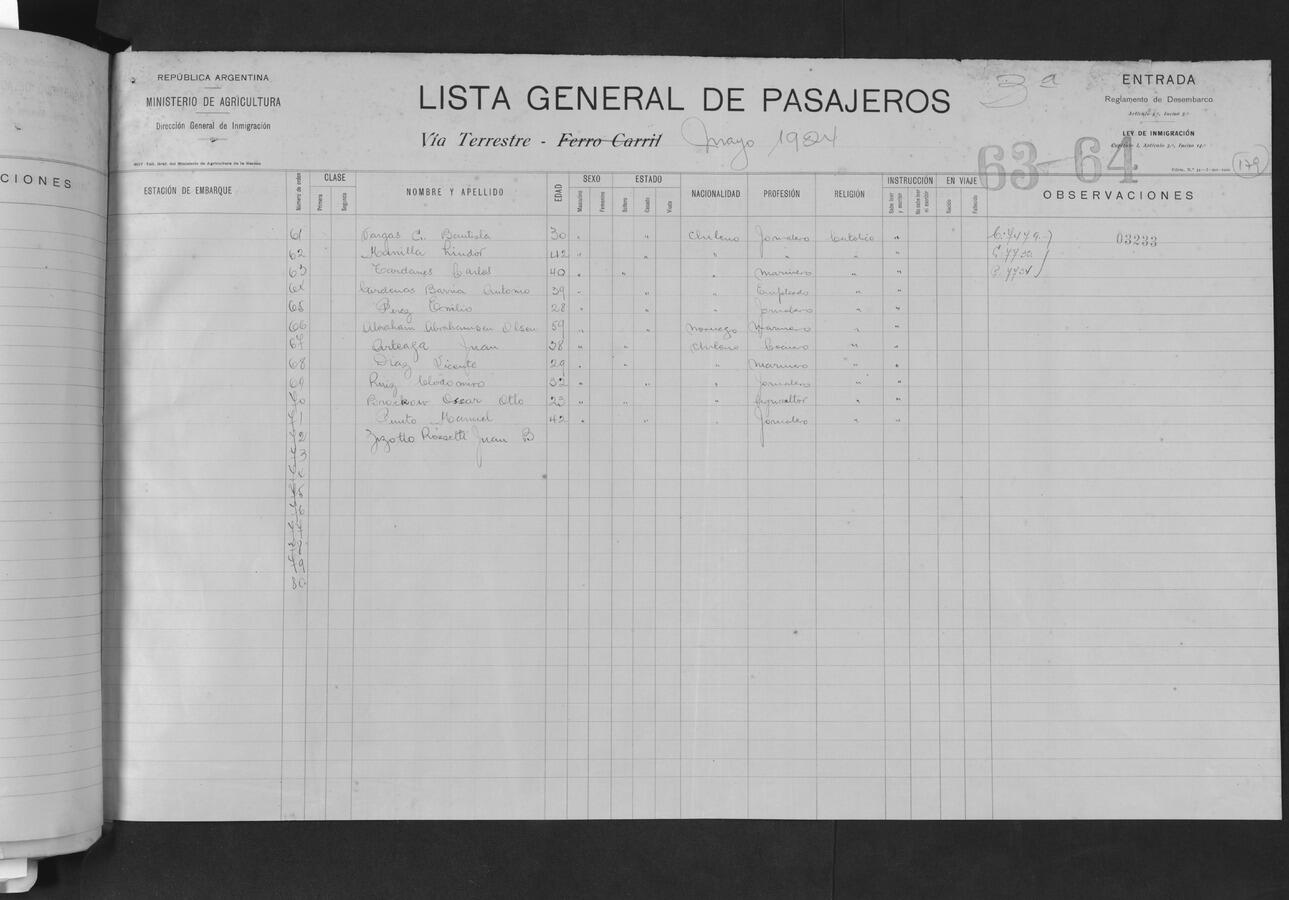 CIONES
REPÚBLICA ARGENTINA
MINISTERIO DE AGRICULTURA
Dirección General de Inmigración
LISTA GENERAL DE PASAJEROS
Vía Terrestre - Ferro Carril Mayo 1924
3ª
63-64
ENTRADA
Reglamento de Desembarco
LEY DE INMIGRACIÓN
179
ESTACIÓN DE EMBARQUE Número de orden CLASE Primera Segunda NOMBRE Y APELLIDO EDAD SEXO Masculino Femenino ESTADO Soltero Casado Viudo NACIONALIDAD PROFESIÓN RELIGIÓN INSTRUCCIÓN Sabe leer y escribir No sabe leer ni escribir EN VIAJE Nacido Fallecido OBSERVACIONES
61 Vargas C. Bautista 30 " " Chileno Jornalero Católico " 03233
62 Mansilla Lindor 42 " " " " " "
63 Carlos 40 " " " Marinero " "
64 Cardenas Barria Antonio 39 " " " Empleado " "
65 Perez Emilio 28 " " " Jornalero " "
66 Abraham Abrahamsen Olsen 59 " " Noruego Marinero " "
67 Arteaga Juan 38 " " Chileno Cocinero " "
68 Diaz Vicente 29 " " " Marinero " "
69 Ruiz Clodomiro 32 " " " Jornalero " "
70 Oscar Otto 23 " " " Agricultor " "
1 Manuel 42 " " " Jornalero " "
2 Juan B
3
79
80